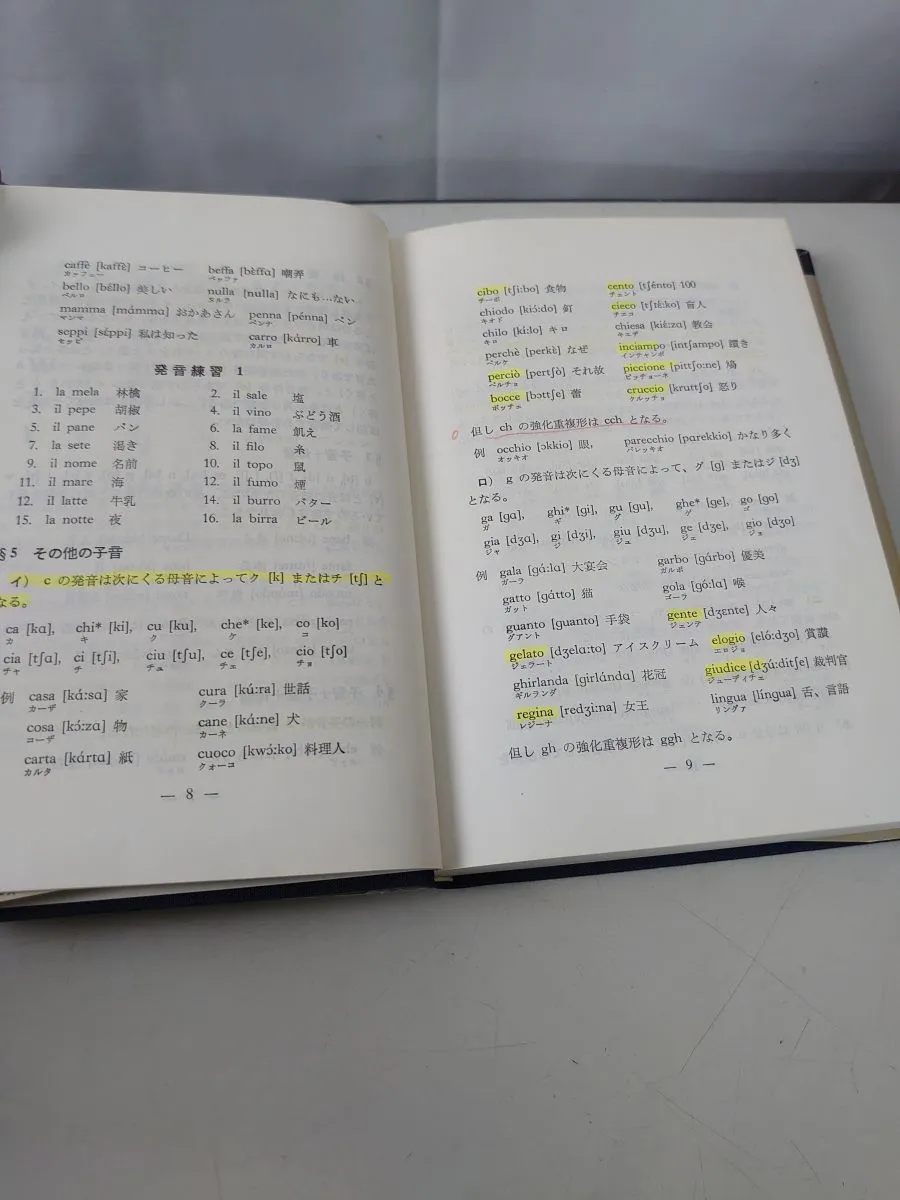 caffè [kaffɛ̀] コーヒー　beffa [bɛ̀ffɑ] 嘲弄
カッフェー　ベッファ
bello [bɛ́llo] 美しい　nulla [nulla] なにも…ない
ベルロ　ヌルラ
mamma [mámmɑ] おかあさん　penna [pénna] ペン
マンマ　ペンナ
seppi [sɛ́ppi] 私は知った　carro [kárro] 車
セッピ　カルロ
発音練習 1
1. la mela 林檎　2. il sale 塩
3. il pepe 胡椒　4. il vino ぶどう酒
5. il pane パン　6. la fame 飢え
7. la sete 渇き　8. il filo 糸
9. il nome 名前　10. il topo 鼠
11. il mare 海　12. il fumo 煙
12. il latte 牛乳　14. il burro バター
15. la notte 夜　16. la birra ビール
§5 その他の子音
イ） c の発音は次にくる母音によってク [k] またはチ [tʃ] と
なる。
ca [kɑ], chi* [ki], cu [ku], che* [ke], co [ko]
カ　キ　ク　ケ　コ
cia [tʃɑ], ci [tʃi], ciu [tʃu], ce [tʃe], cio [tʃo]
チャ　チ　チュ　チェ　チョ
例 casa [kɑ́:sɑ] 家　cura [kú:ra] 世話
カーザ　クーラ
cosa [kɔ́:zɑ] 物　cane [kɑ́:ne] 犬
コーザ　カーネ
carta [kɑ́rtɑ] 紙　cuoco [kwɔ́:ko] 料理人
カルタ　クォーコ
— 8 —
cibo [tʃi:bo] 食物　cento [tʃénto] 100
チーボ　チェント
chiodo [kiɔ́:do] 釘　cieco [tʃɛ́:ko] 盲人
キオド　チェコ
chilo [ki:lo] キロ　chiesa [kiɛ́:zɑ] 教会
キロ　キエザ
perchè [perkè] なぜ　inciampo [intʃampo] 躓き
ペルケ　インチャンポ
perciò [pertʃò] それ故　piccione [pittʃo:ne] 鳩
ペルチョ　ピッチョーネ
bocce [bɔttʃe] 蕾　cruccio [kruttʃo] 怒り
ボッチェ　クルッチョ
但し ch の強化重複形は cch となる。
例 occhio [ɔkkio] 眼,　parecchio [pɑrekkio] かなり多く
オッキオ　パレッキオ
ロ） g の発音は次にくる母音によって、グ [g] またはジ [dʒ]
となる。
ga [gɑ], ghi* [gi], gu [gu], ghe* [ge], go [go]
ガ　ギ　グ　ゲ　ゴ
gia [dʒɑ], gi [dʒi], giu [dʒu], ge [dʒe], gio [dʒo]
ジャ　ジ　ジュ　ジェ　ジョ
例 gala [gɑ́:lɑ] 大宴会　garbo [gɑ́rbo] 優美
ガーラ　ガルボ
gatto [gɑ́tto] 猫　gola [gó:lɑ] 喉
ガット　ゴーラ
guanto [guanto] 手袋　gente [dʒɛnte] 人々
グアント　ジェンテ
gelato [dʒelɑ:to] アイスクリーム　elogio [eló:dʒo] 賞讃
ジェラート　エロジョ
ghirlanda [girlándɑ] 花冠　giudice [dʒú:ditʃe] 裁判官
ギルランダ　ジューディチェ
regina [redʒi:na] 女王　lingua [língua] 舌、言語
レジーナ　リングァ
但し gh の強化重複形は ggh となる。
— 9 —